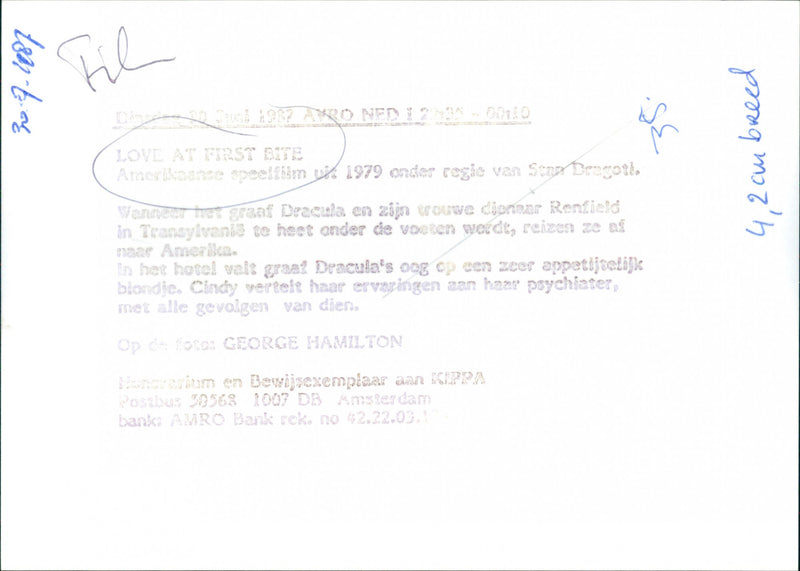 30-7-1987
Film
Dinsdag 30 Juni 1987 AVRO NED I 2 h30 - 00h10
LOVE AT FIRST BITE
Amerikaanse speelfilm uit 1979 onder regie van Stan Dragoti.
Wanneer het graaf Dracula en zijn trouwe dienaar Renfield
in Transylvanië te heet onder de voeten wordt, reizen ze af
naar Amerika.
In het hotel valt graaf Dracula's oog op een zeer appetijtelijk
blondje. Cindy vertelt haar ervaringen aan haar psychiater,
met alle gevolgen van dien.
Op de foto: GEORGE HAMILTON
Honorarium en Bewijsexemplaar aan KIPPA
Postbus 50568 1007 DB Amsterdam
bank: AMRO Bank rek. no 42.22.03.
4,2 cm breed